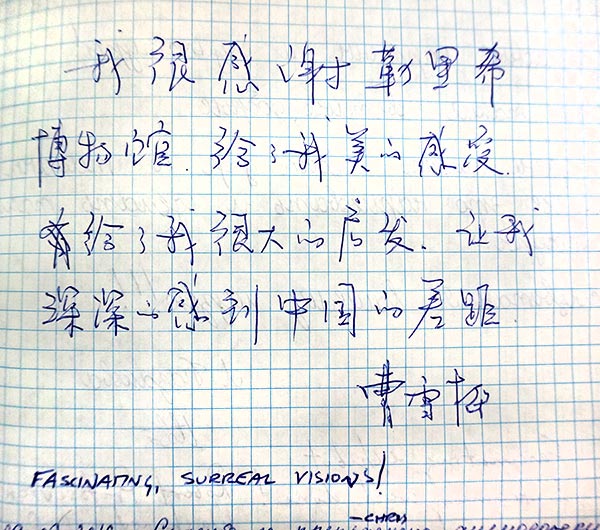 我很感谢勒里希
博物馆.给了我美的感受.
给了我很大的启发、让我
深深的感到中国的差距.
曹雪
FASCINATING, SURREAL VISIONS!
—CHRIS